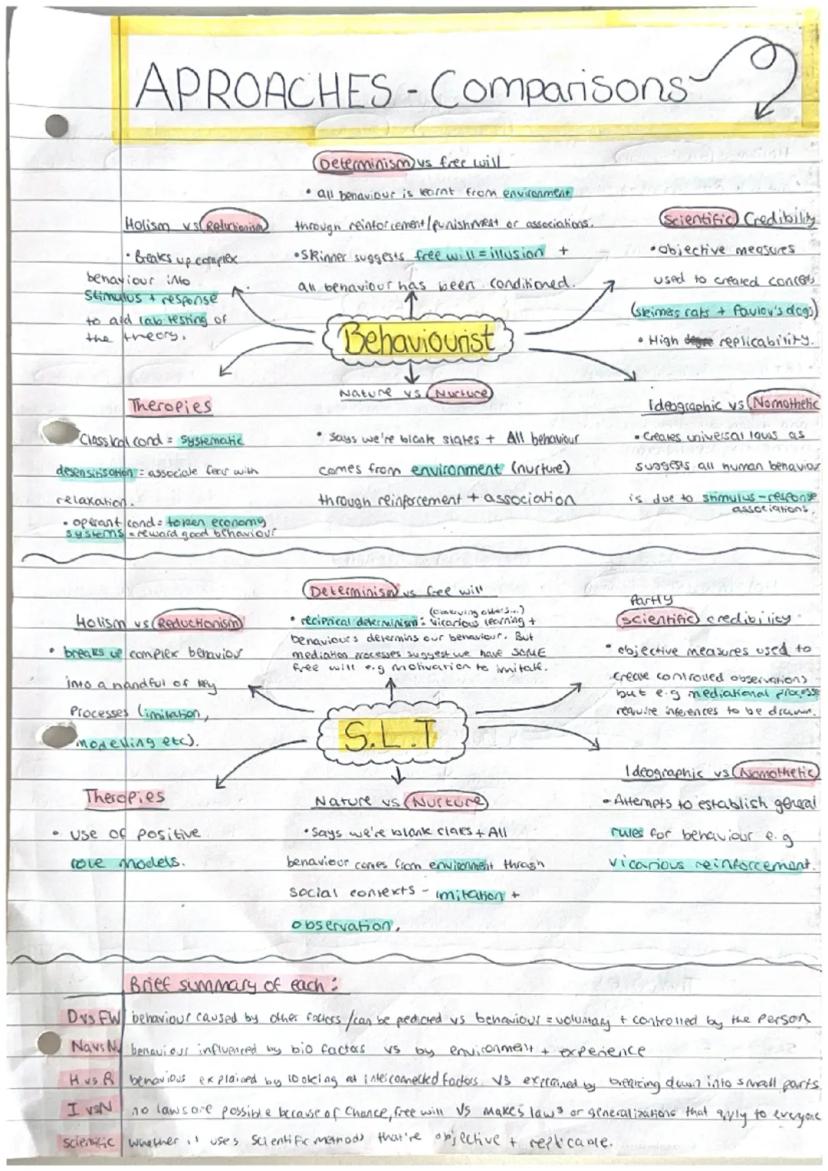 APROACHES - Comparisons
Determinism vs free will
• all behaviour is learnt from environment
through reinforcement/punishment or associations.
• Skinner suggests free will = illusion +
all behaviour has been conditioned.
Holism vs Reductionism
• Breaks up complex
behaviour into
stimulus + response
to aid lab testing of
the theory.
Scientific Credibility
• objective measures
used to created concepts
(skinners rats + Pavlov's dogs)
• High replicability.
Behaviourist
Therapies
Classical cond = systematic
desensitisation = associate fear with
relaxation.
• operant cond = token economy
systems = reward good behaviour
Nature vs Nurture
• Says we're blank slates + All behaviour
comes from environment (nurture)
through reinforcement + association
Ideographic vs Nomothetic
• Creates universal laws as
suggests all human behaviour
is due to stimulus-response
associations.
Determinism vs free will
(observing others...)
• reciprical determinism: vicarious learning +
behaviours determins our behaviour. But
mediation processes suggest we have SOME
free will e.g motivation to imitate.
Holism vs Reductionism
• breaks up complex behaviour
into a handful of key
Processes (imitation,
modelling etc).
Partly
scientific credibility
• objective measures used to
create controlled observations
but e.g mediational process
require inferences to be drawn.
S.L.T
Therapies
• use of positive
role models.
Nature vs Nurture
• Says we're blank slates + All
behaviour comes from environment through
social contexts - imitation +
observation.
Ideographic vs Nomothetic
• Attempts to establish general
rules for behaviour e.g
vicarious reinforcement.
Brief summary of each:
D vs FW behaviour caused by other factors / can be predicted vs behaviour = voluntary + controlled by the person
Na vs Nu behaviour influenced by bio factors vs by environment + experience
H vs R behaviour explained by looking at interconnected factors vs explained by breaking down into small parts
I vs N no laws are possible because of chance, free will vs makes laws or generalizations that apply to everyone
scientific whether it uses scientific methods that're objective + replicable.